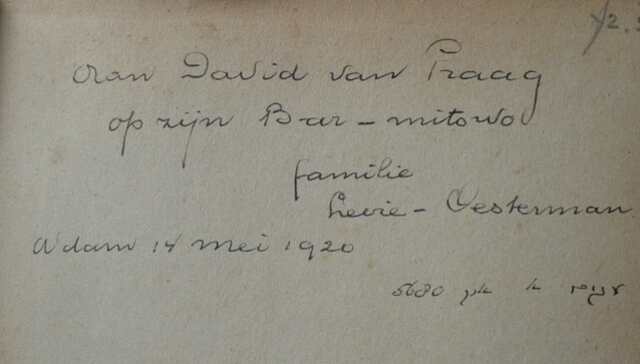 2.
Aan David van Praag
op zijn Bar-mitswo
familie
Levie-Oesterman
A'dam 14 mei 1920